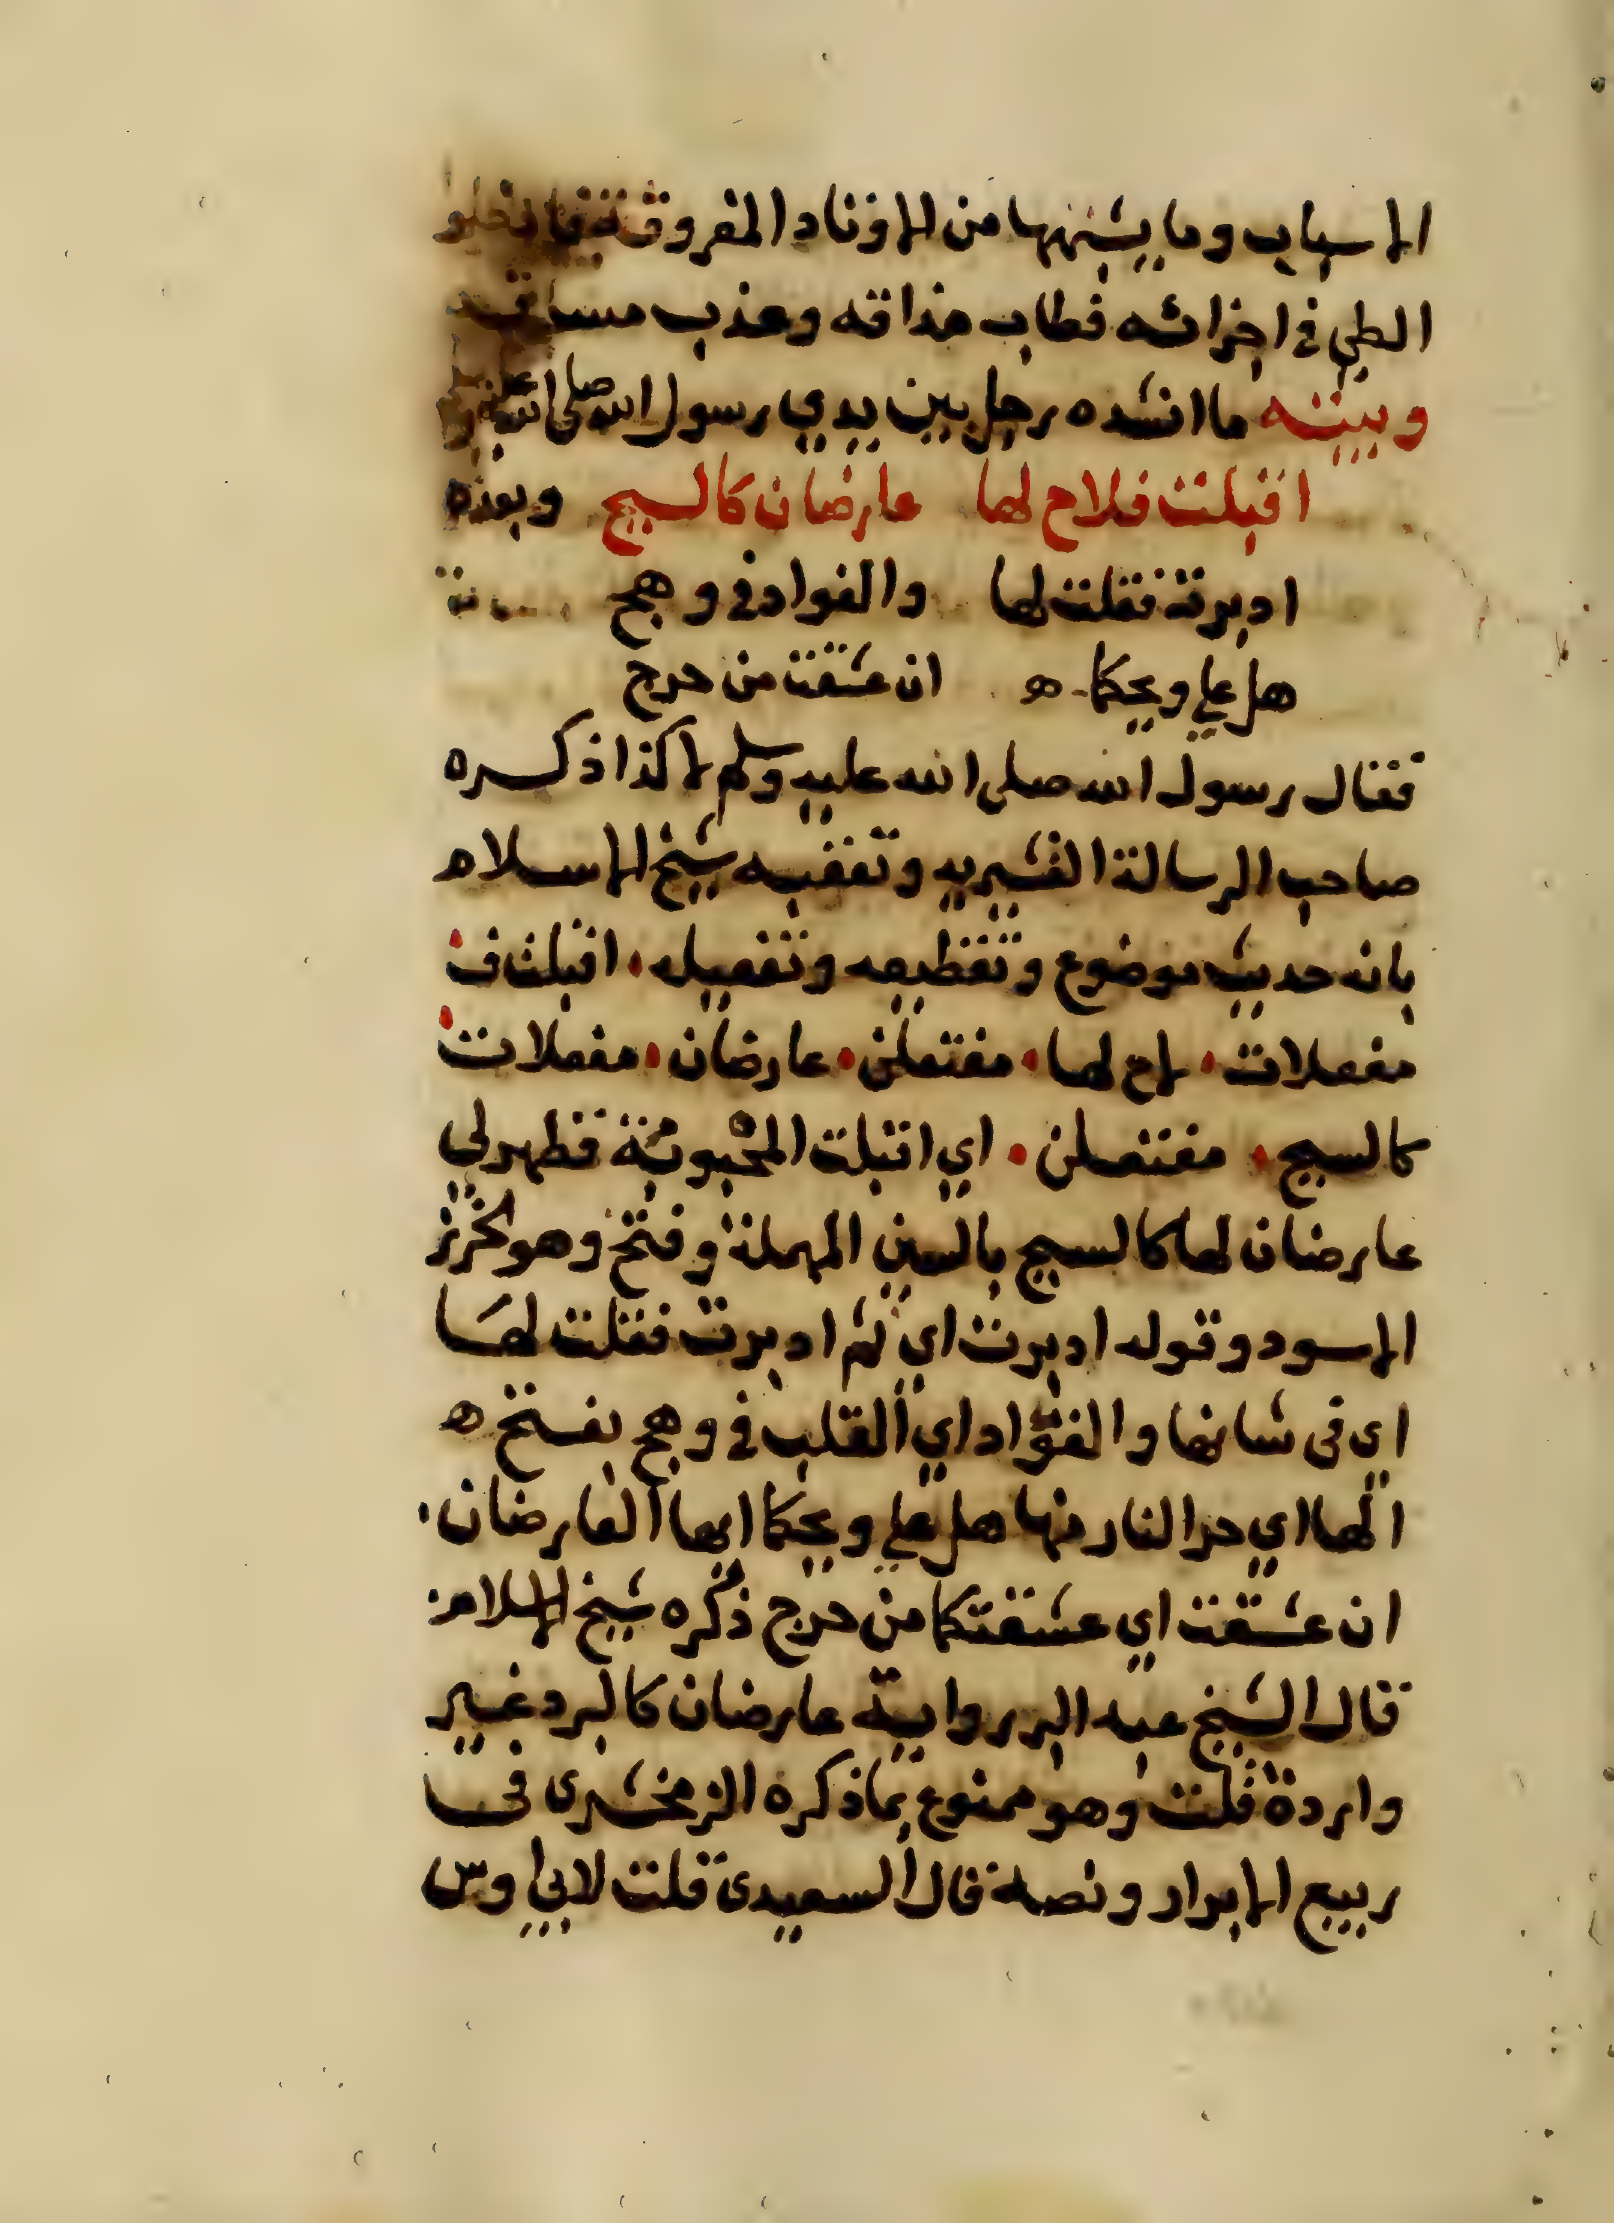 الاسباب وما يشبهها من الاوتاد المفروقة
الطي في اجزائه فطاب مذاقه وعذب
وبيته ما انشده رجل بين يدي رسول الله صلى الله عليه
اقبلت فلاح لها عارضان كالسبج وبعده
ادبرت فقلت لها والفواد في وهج
هل علي ويحكما ه ان عشقت من حرج
فقال رسول الله صلى الله عليه وسلم لا كذا ذكره
صاحب الرسالة القشيريه وتعقبه شيخ الاسلام
بانه حديث موضوع وتقطيعه وتفعيله اقبلت ف
مفعلات لاح لها مفتعلن عارضان مفعلات
كالسبج مفتعلن اي اقبلت المحبوبة فظهر لي
عارضان لها كالسبج بالسين المهملة وفتح وهو الخرز
الاسود وقوله ادبرت اي ثم ادبرت فقلت لها
اي في شانها والفؤاد اي القلب في وهج بفتح ه
الها اي حر النار منها هل علي ويحكما ايها العارضان
ان عشقت اي عشقتكما من حرج ذكره شيخ الاسلام
قال الشيخ عبد البر رواية عارضان كالبرد غير
واردة قلت وهو ممنوع بما ذكره الزمخشرى فى
ربيع الابرار ونصه قال السعيدى قلت لابي اوس